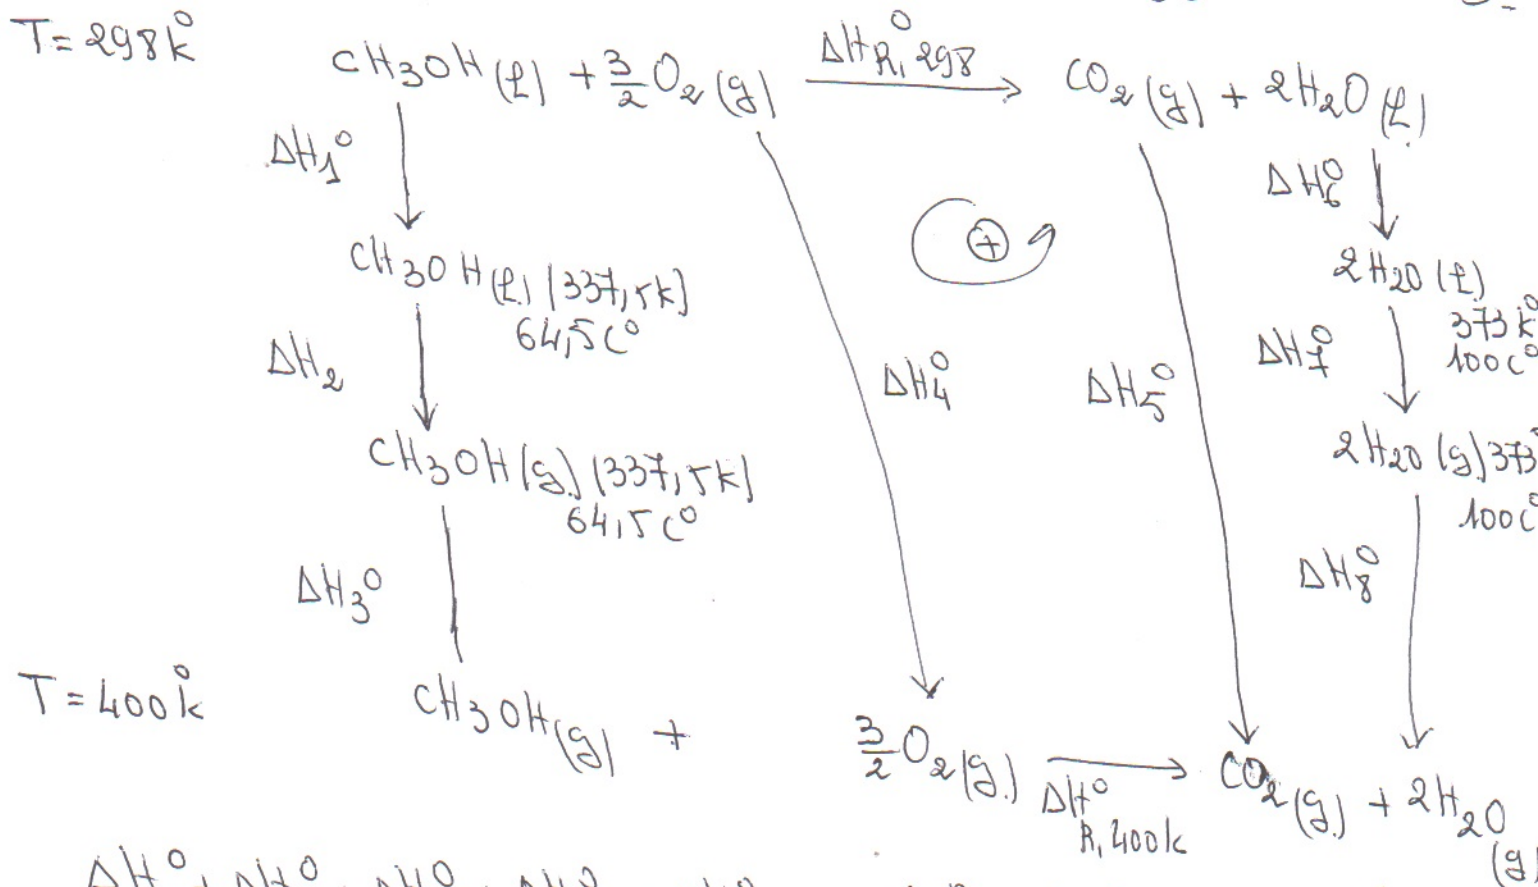 T = 298k°
CH3OH(l) + 3/2 O2(g) ΔH°R,298 CO2(g) + 2H2O(l)
ΔH1°
ΔH6°
CH3OH(l) (337,5k)
64,5C°
2H2O(l)
373k°
100C°
ΔH2
ΔH4°
ΔH5°
ΔH7°
CH3OH(g) (337,5k)
64,5C°
2H2O(g) 373°
100C°
ΔH3°
ΔH8°
T = 400k°
CH3OH(g) + 3/2 O2(g) ΔH°R,400k CO2(g) + 2H2O(g)